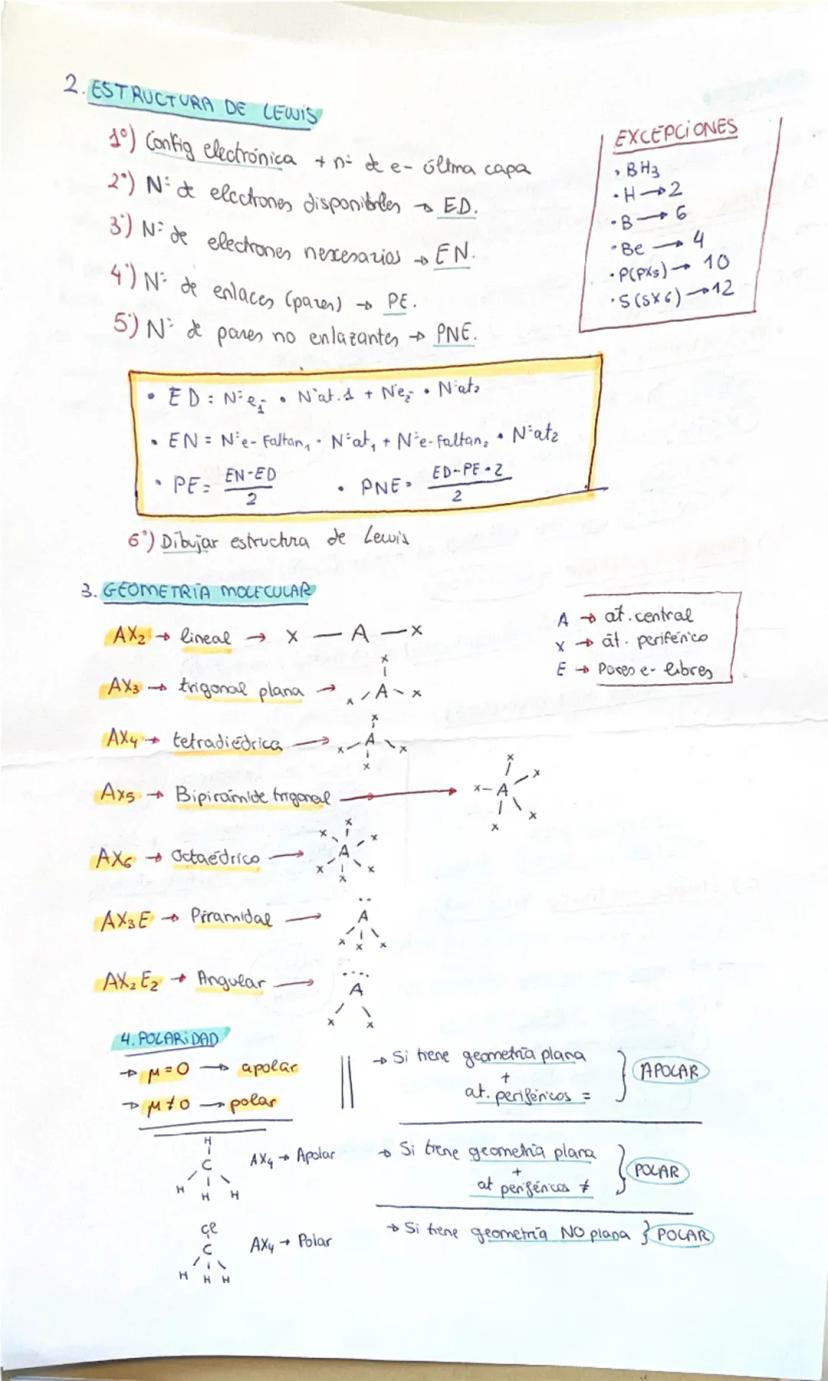 2. ESTRUCTURA DE LEWIS
1º) Config electrónica + nº de e- última capa
2º) Nº de electrones disponibles → ED.
3º) Nº de electrones necesarios → EN.
4º) Nº de enlaces (pares) → PE.
5º) Nº de pares no enlazantes → PNE.
EXCEPCIONES
· BH3
· H → 2
· B → 6
· Be → 4
· P(PX5) → 10
· S(SX6) → 12
• ED = Nºe-1 • Nºat.1 + Nºe-2 • Nºat2
• EN = Nºe- Faltan1 · Nºat1 + Nºe- Faltan2 • Nºat2
• PE = EN-ED / 2 • PNE = ED-PE·2 / 2
6º) Dibujar estructura de Lewis
3. GEOMETRIA MOLECULAR
A → at. central
X → át. periférico
E → Pares e- libres
AX2 → lineal → X — A — X
AX3 → trigonal plana → X A X X
AX4 → tetradiédrica → X X A X X
AX5 → Bipirámide trigonal → X X X A X X
AX6 → Octaédrico → X X X A X X X
AX3E → Piramidal → A X X X
AX2E2 → Angular → A X X
4. POLARIDAD
→ μ=0 → apolar
→ μ≠0 → polar
→ Si tiene geometría plana
+
at. periféricos =
} APOLAR
→ Si tiene geometría plana
+
at periféricos ≠
} POLAR
→ Si tiene geometría NO plana } POLAR
H
C
H H H
AX4 → Apolar
C
H H H
AX4 → Polar